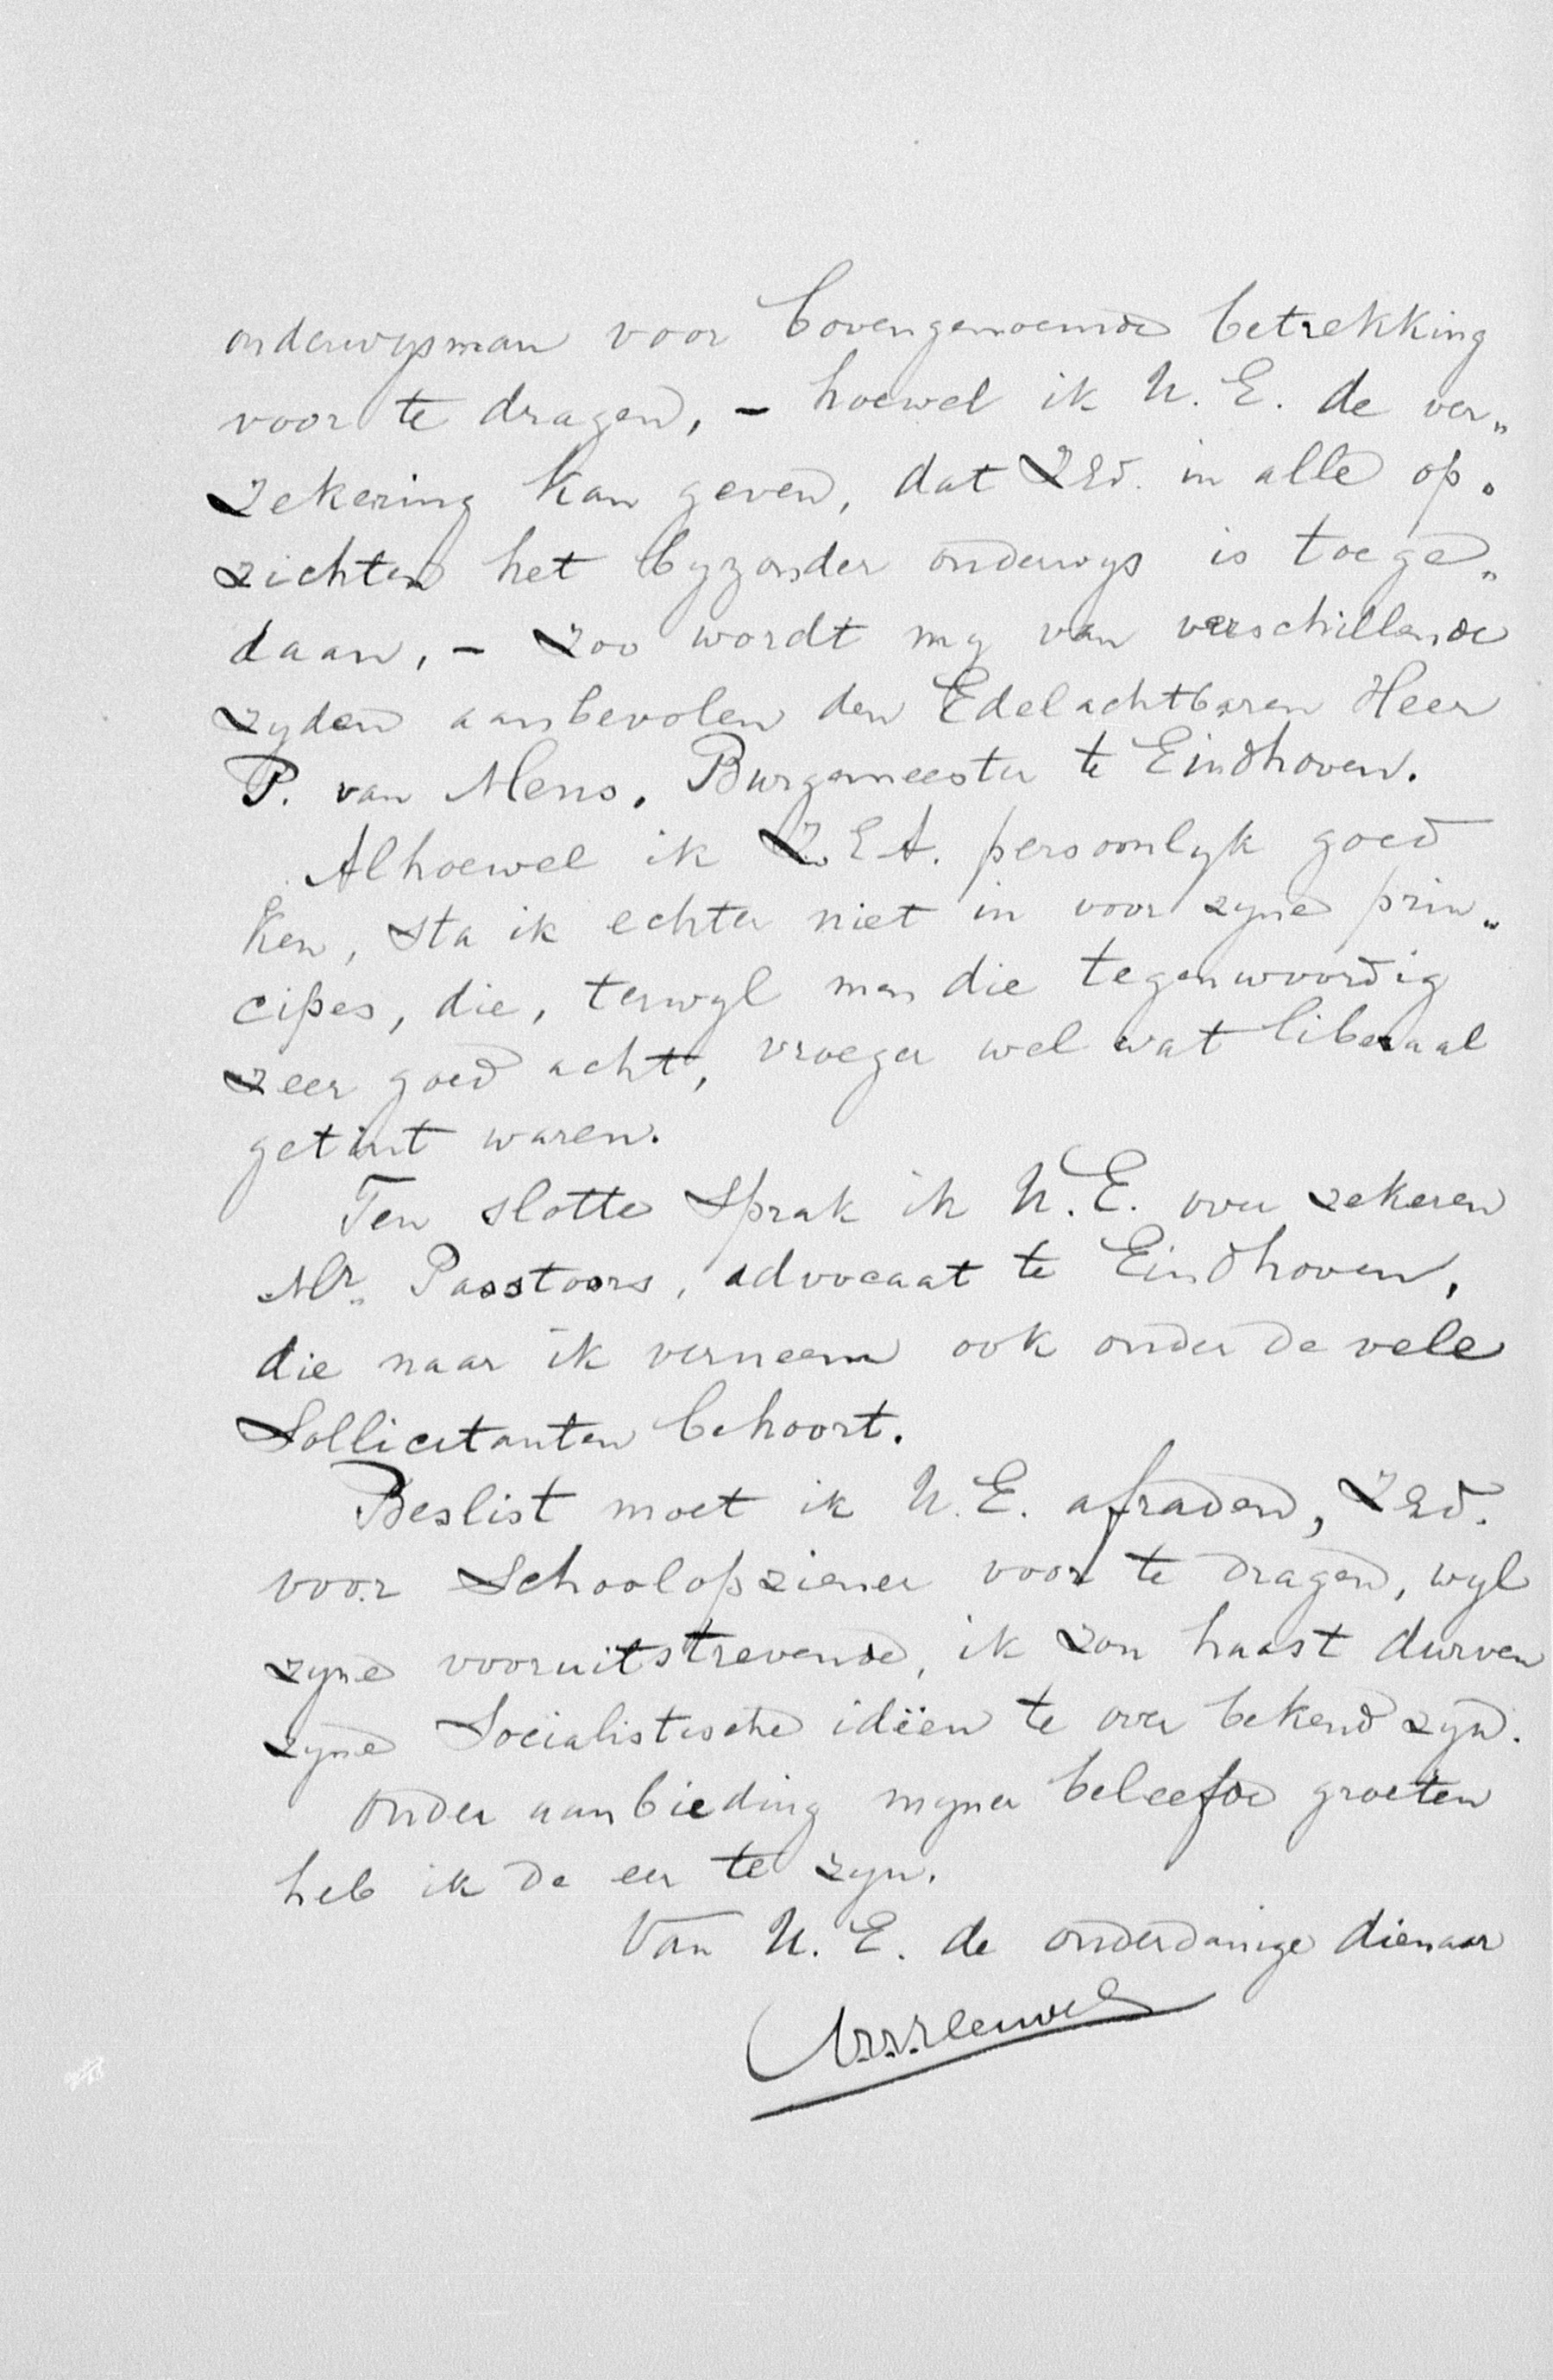 onderwysman voor bovengenoemde betrekking
voor te dragen, - hoewel ik U. E. de ver„
zekering kan geven, dat ZEd. in alle op„
zichten het byzonder onderwys is toege„
daan, - zoo wordt my van verschillende
zyden aanbevolen den Edelachtbaren Heer
P. van Mens, Burgemeester te Eindhoven.
Alhoewel ik Z. E A. persoonlyk goed
ken, sta ik echter niet in voor zyne prin„
cipes, die, terwyl men die tegenwoordig
zeer goed acht, vroeger wel wat liberaal
getint waren.
Ten slotte sprak ik U. E. over zekeren
Mr. Passtoors, advocaat te Eindhoven,
die naar ik verneem ook onder de vele
Sollicitanten behoort.
Beslist moet ik U. E. afraden, ZEd.
voor Schoolopziener voor te dragen, wyl
zyne vooruitstrevende, ik zou haast durven
zyne Socialistische idëen te over bekend zyn.
Onder aanbieding myner beleefde groeten
heb ik de eer te zyn.
Van U. E. de onderdanige dienaar